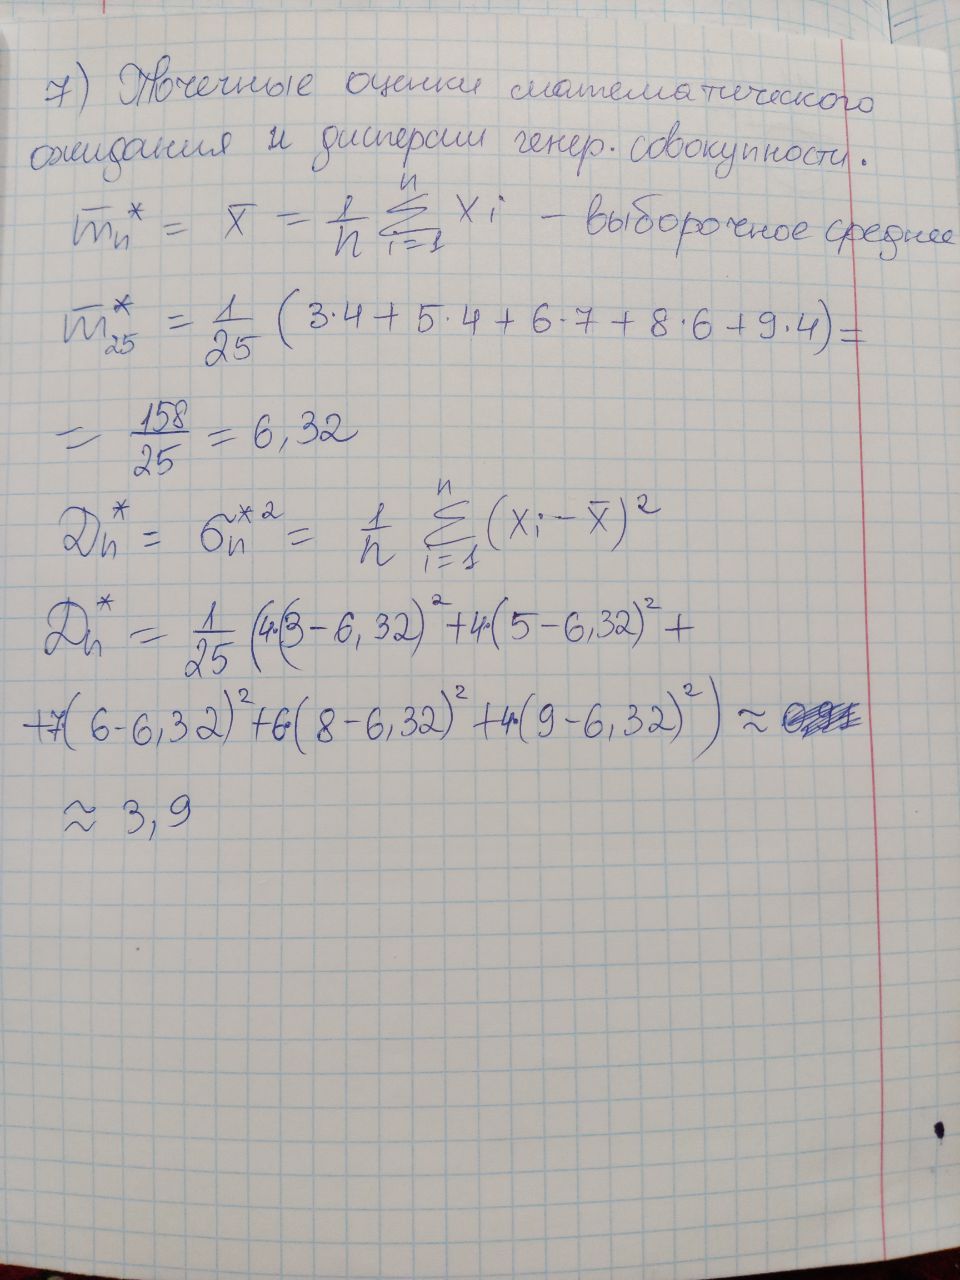 7) Точечные оценки математического
ожидания и дисперсии генер. совокупности.
m̅ₙ* = x̅ = 1/n ∑ᵢ₌₁ⁿ xᵢ – выборочное среднее
m̅₂₅* = 1/25 (3·4 + 5·4 + 6·7 + 8·6 + 9·4) =
= 158/25 = 6,32
Dₙ* = σₙ*² = 1/n ∑ᵢ₌₁ⁿ (xᵢ – x̅)²
Dₙ* = 1/25 (4·(3 – 6,32)² + 4·(5 – 6,32)² +
+ 7·(6 – 6,32)² + 6·(8 – 6,32)² + 4·(9 – 6,32)²) ≈
≈ 3,9